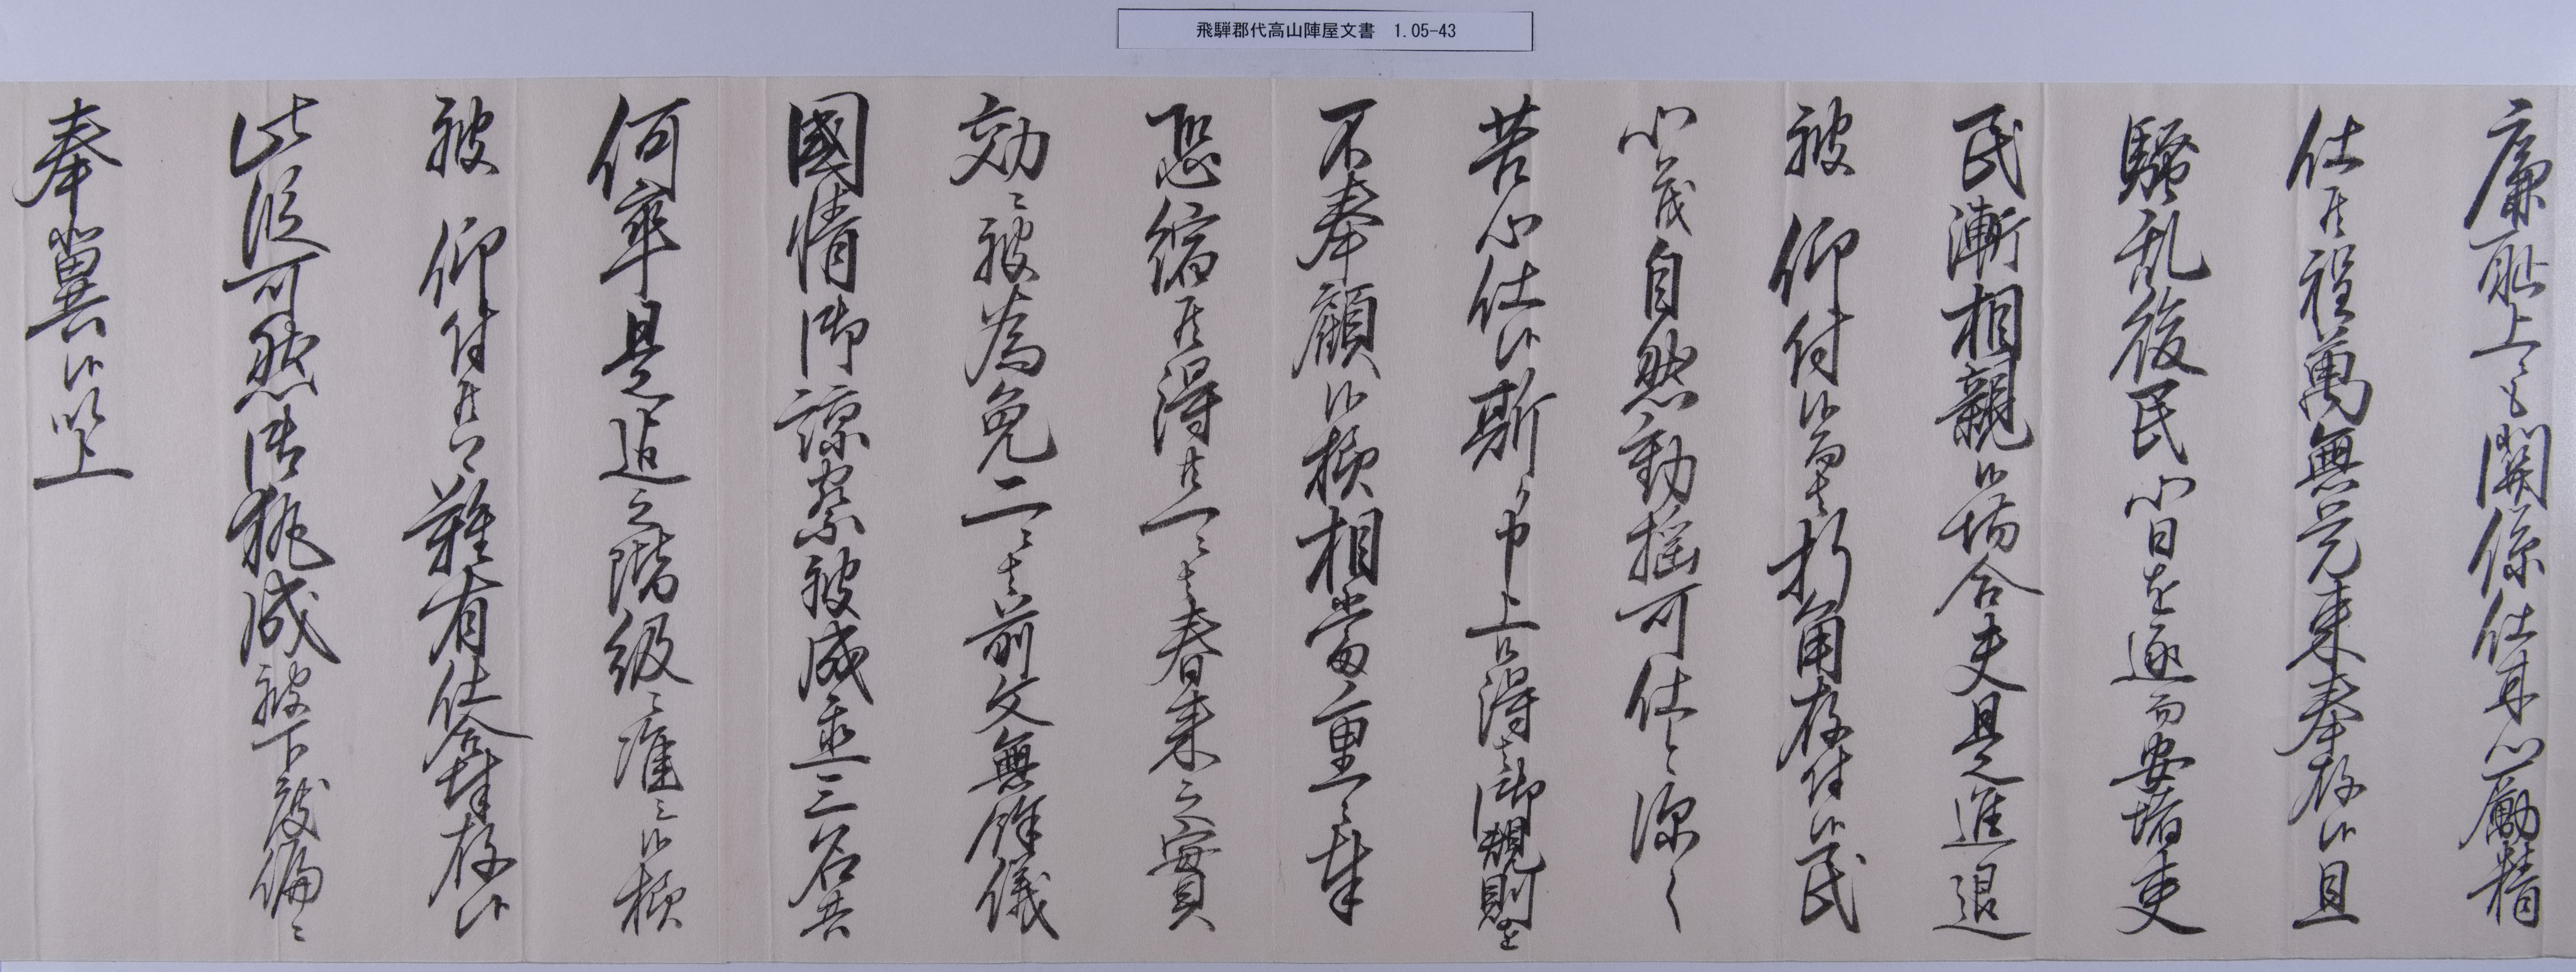 飛騨郡代高山陣屋文書 1.05-43
廉耻上ニも関係仕耳心厭精
仕居程萬無覚束奉存候且
騒乱後民心日を逐而安堵吏
民漸相親候場合夫是進退
被 仰付候而者折角居付候民
心茂自然動揺可仕与深く
苦心仕候斯ク申上候得者御規則を
不奉顧候様相当重々奉
恐縮候得共一ニ者春来之実
効ニ被為免二ニ者前文無余儀
國情御諒察被成直三名共
何卒是迄之階級ニ准シ候様
被 仰付候ハヽ難有仕合奉存候
此段可然御執成被下度偏ニ
奉冀候以上